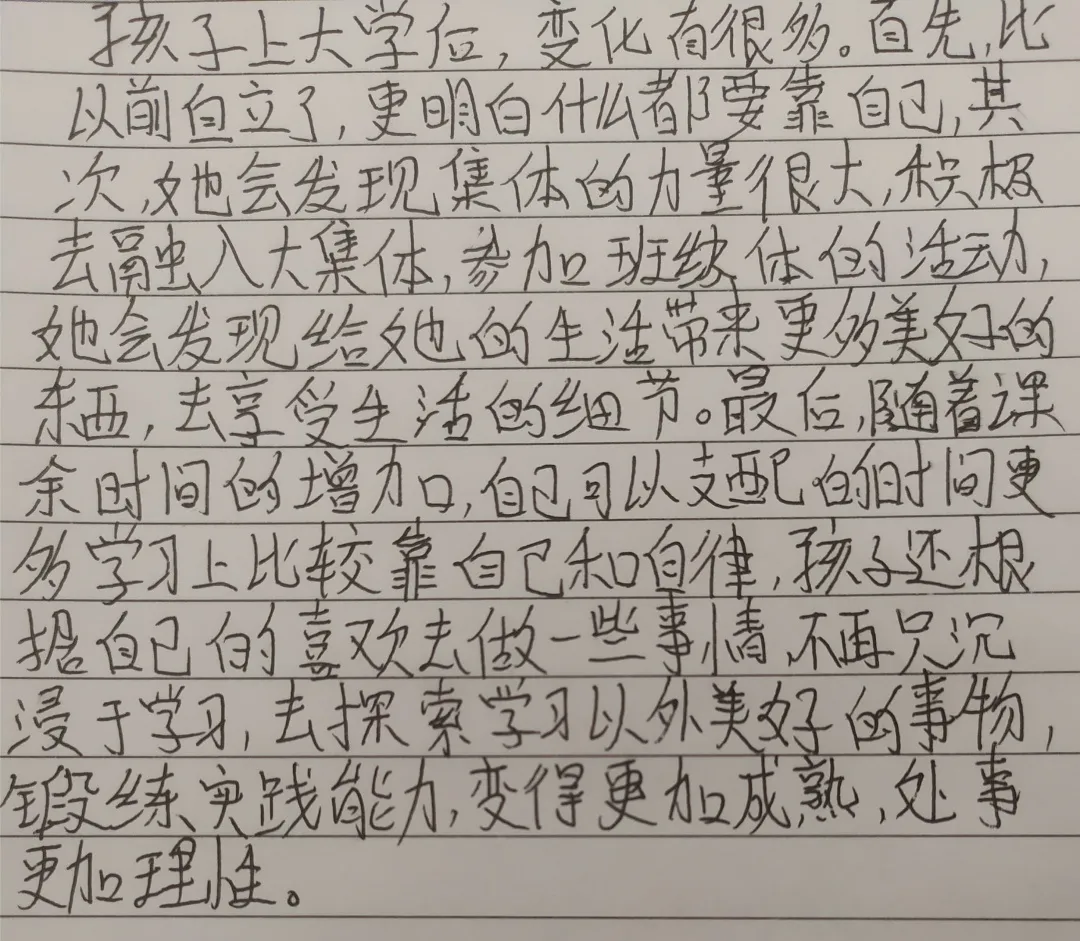 孩子上大学位，变化有很多。首先，比
以前自立了，更明白什么都要靠自己，其
次，她会发现集体的力量很大，积极
去融入大集体，参加班级体的活动，
她会发现给她的生活带来更多美好的
东西，去享受生活的细节。最后，随着课
余时间的增加，自己可以支配的时间更
多学习上比较靠自己和自律，孩子还根
据自己的喜欢去做一些事情，不再只沉
浸于学习，去探索学习以外美好的事物，
锻练实践能力，变得更加成熟，处事
更加理性。